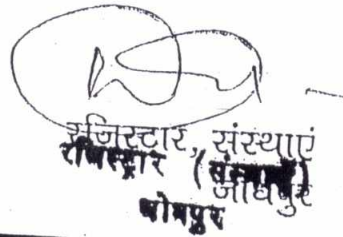 रजिस्टार, संस्थाएं
रजिस्ट्रार (संस्थाएं)
जोधपुर
जोधपुर